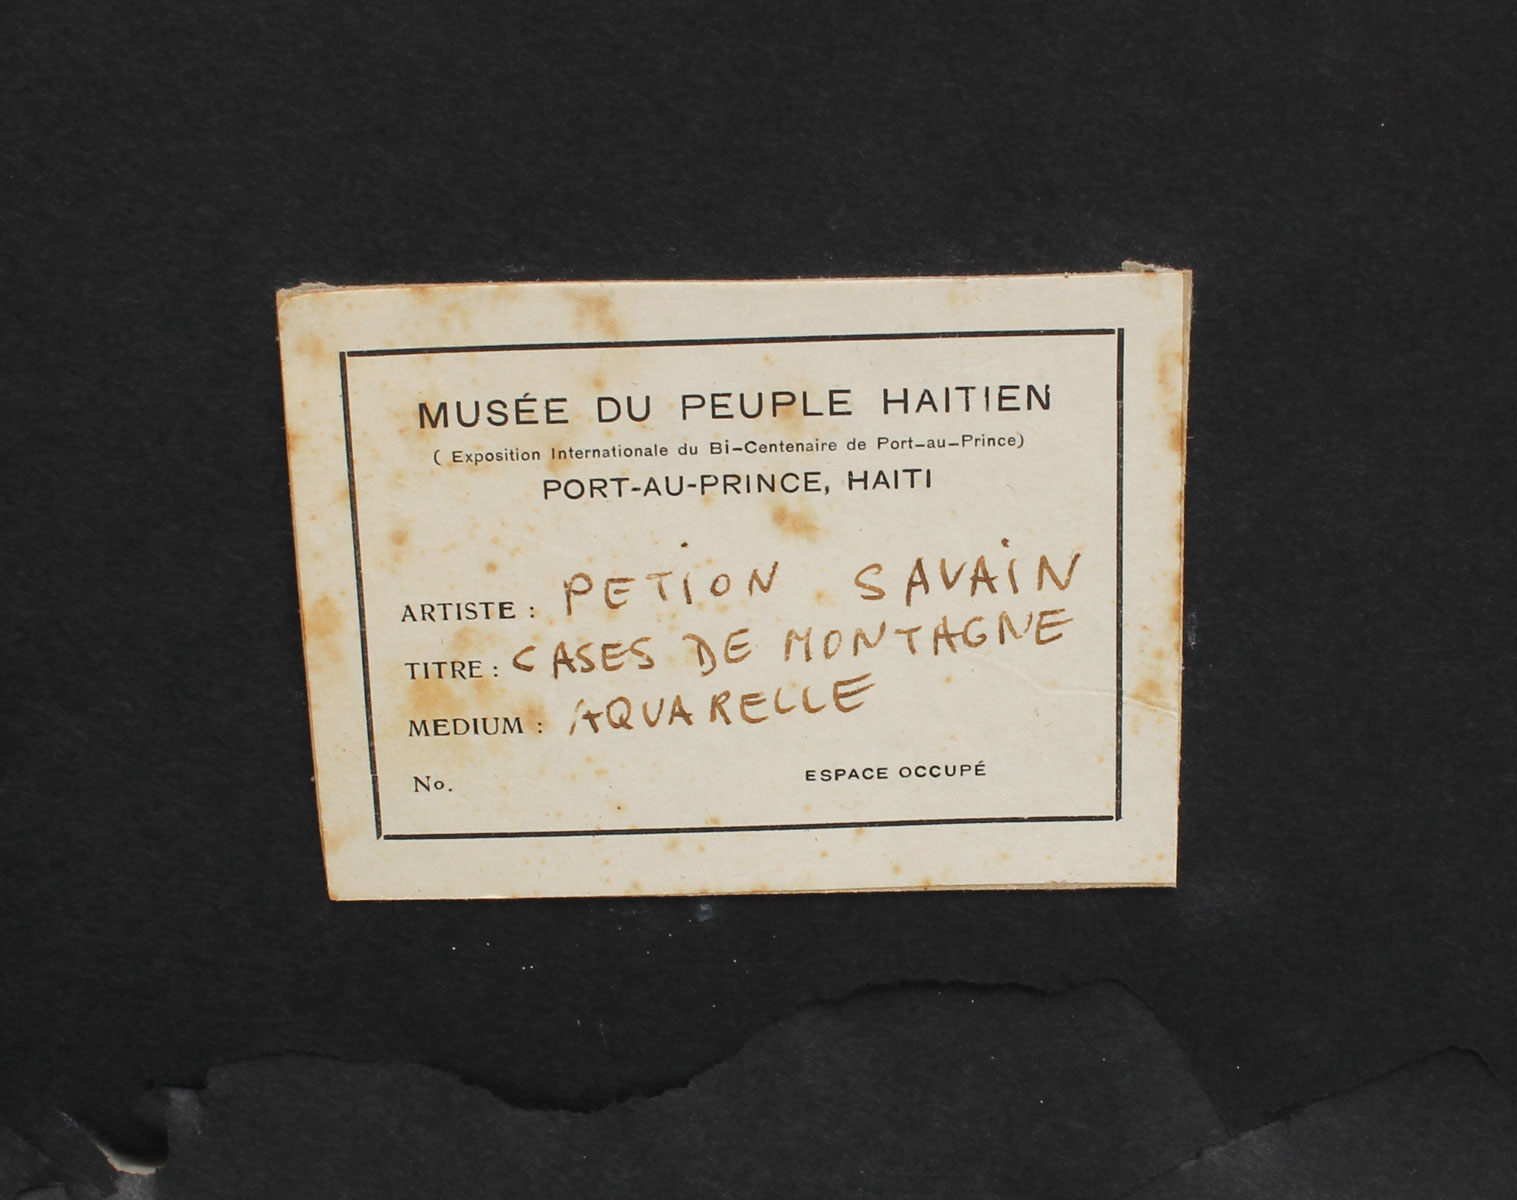 MUSÉE DU PEUPLE HAITIEN
( Exposition Internationale du Bi-Centenaire de Port-au-Prince)
PORT-AU-PRINCE, HAITI
ARTISTE : PETION SAVAIN
TITRE : CASES DE MONTAGNE
MEDIUM : AQUARELLE
No. ESPACE OCCUPÉ